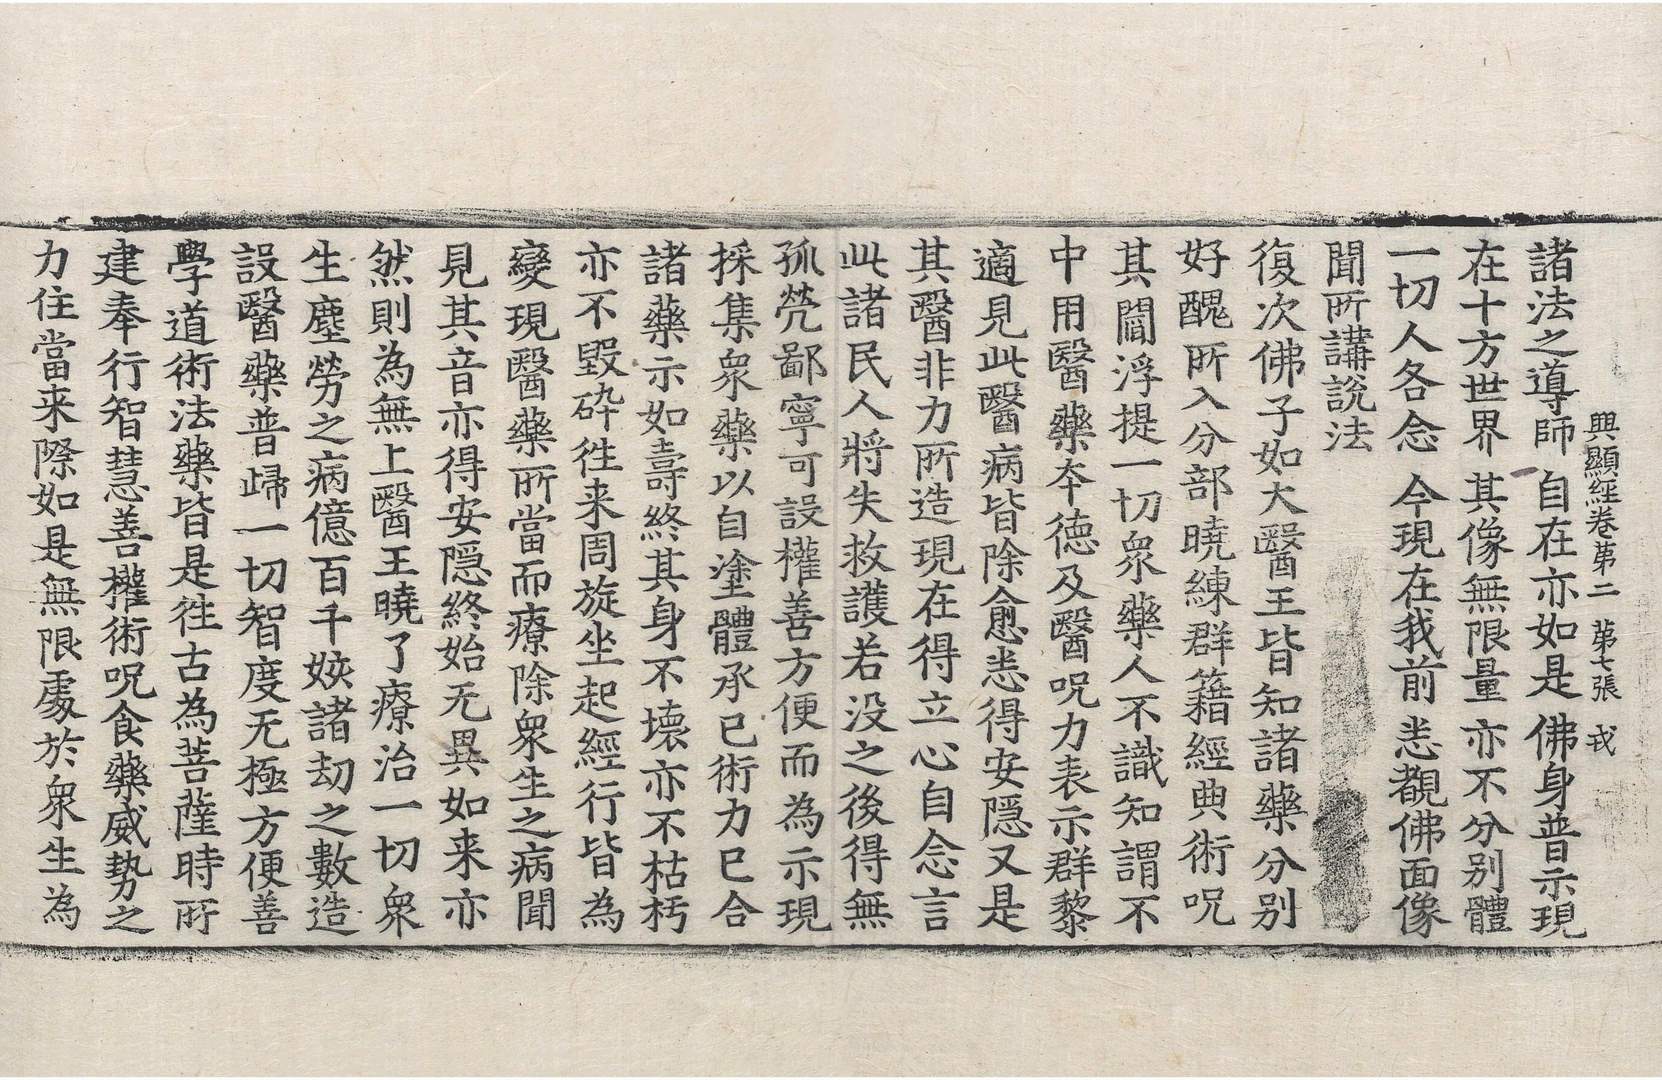 興顯経卷第二　第七張　戎
諸法之導師　自在亦如是　佛身普示現
在十方世界　其像無限量　亦不分別體
一切人各念　今現在我前　悉覩佛面像
聞所講說法
復次佛子如大醫王皆知諸藥分別
好醜所入分部曉練群籍經典術呪
其閻浮提一切衆藥人不識知謂不
中用醫藥夲德及醫呪力表示群黎
適見此醫病皆除愈悉得安隱又是
其醫非力所造現在得立心自念言
此諸民人將失救護若没之後得無
孤㷀鄙寧可設權善方便而為示現
採集衆藥以自塗體承已術力已合
諸藥示如壽終其身不壞亦不枯朽
亦不毀碎徃来周旋坐起經行皆為
變現醫藥所當而療除衆生之病聞
見其音亦得安隱終始无異如来亦
然則為無上醫王曉了療治一切衆
生塵勞之病億百千姟諸劫之數造
設醫藥普歸一切智度无極方便善
學道術法藥皆是徃古為菩薩時所
建奉行智慧善權術呪食藥威勢之
力住當来際如是無限處於衆生為